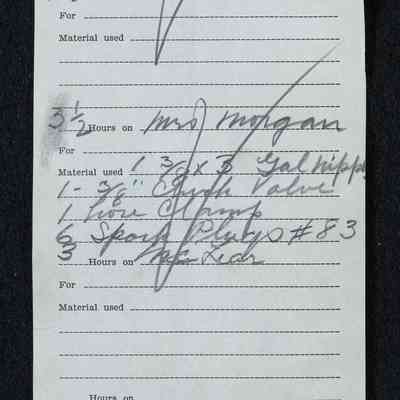 For
Material used
3 1/2 Hours on Mrs Morgan
For
Material used 1 3/8 x 3 Gal nipple
1 - 3/8" Check Valve
1 hose Clamp
6 Spark Plugs #83
3 Hours on
For
Material used
Hours on